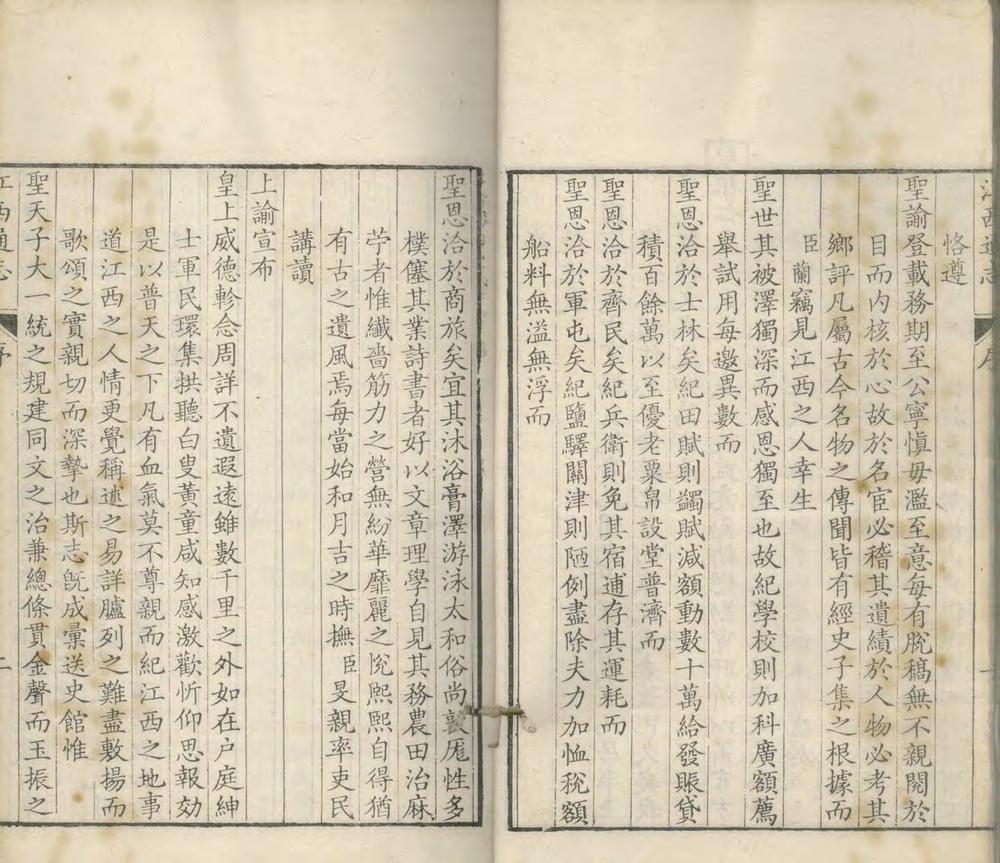 江西通志 序 一
恪遵
聖諭登載務期至公寧慎毋濫至意每有脫稿無不親閱於
目而内核於心故於名宦必稽其遺績於人物必考其
鄉評凡屬古今名物之傳聞皆有經史子集之根據而
臣蘭竊見江西之人幸生
聖世其被澤獨深而感恩獨至也故紀學校則加科廣額薦
舉試用每邀異數而
聖恩洽於士林矣紀田賦則蠲賦減額動數十萬給發賑貸
積百餘萬以至優老粟帛設堂普濟而
聖恩洽於齊民矣紀兵衛則免其宿逋存其運耗而
聖恩洽於軍屯矣紀鹽驛關津則陋例盡除夫力加恤稅額
船料無溢無浮而
聖恩洽於商旅矣宜其沐浴膏澤游泳太和俗尚敦厖性多
樸僿其業詩書者好以文章理學自見其務農田治麻
苧者惟纖嗇筋力之營無紛華靡麗之恱熙熙自得猶
有古之遺風焉每當始和月吉之時撫臣旻親率吏民
講讀
上諭宣布
皇上威德軫念周詳不遺遐遠雖數千里之外如在户庭紳
士軍民環集拱聽白叟黃童咸知感激歡忻仰思報効
是以普天之下凡有血氣莫不尊親而紀江西之地事
道江西之人情更覺稱述之易詳臚列之難盡敷揚而
歌頌之實親切而深摯也斯志旣成彙送史館惟
聖天子大一統之規建同文之治兼總條貫金聲而玉振之
江西通志 序 二